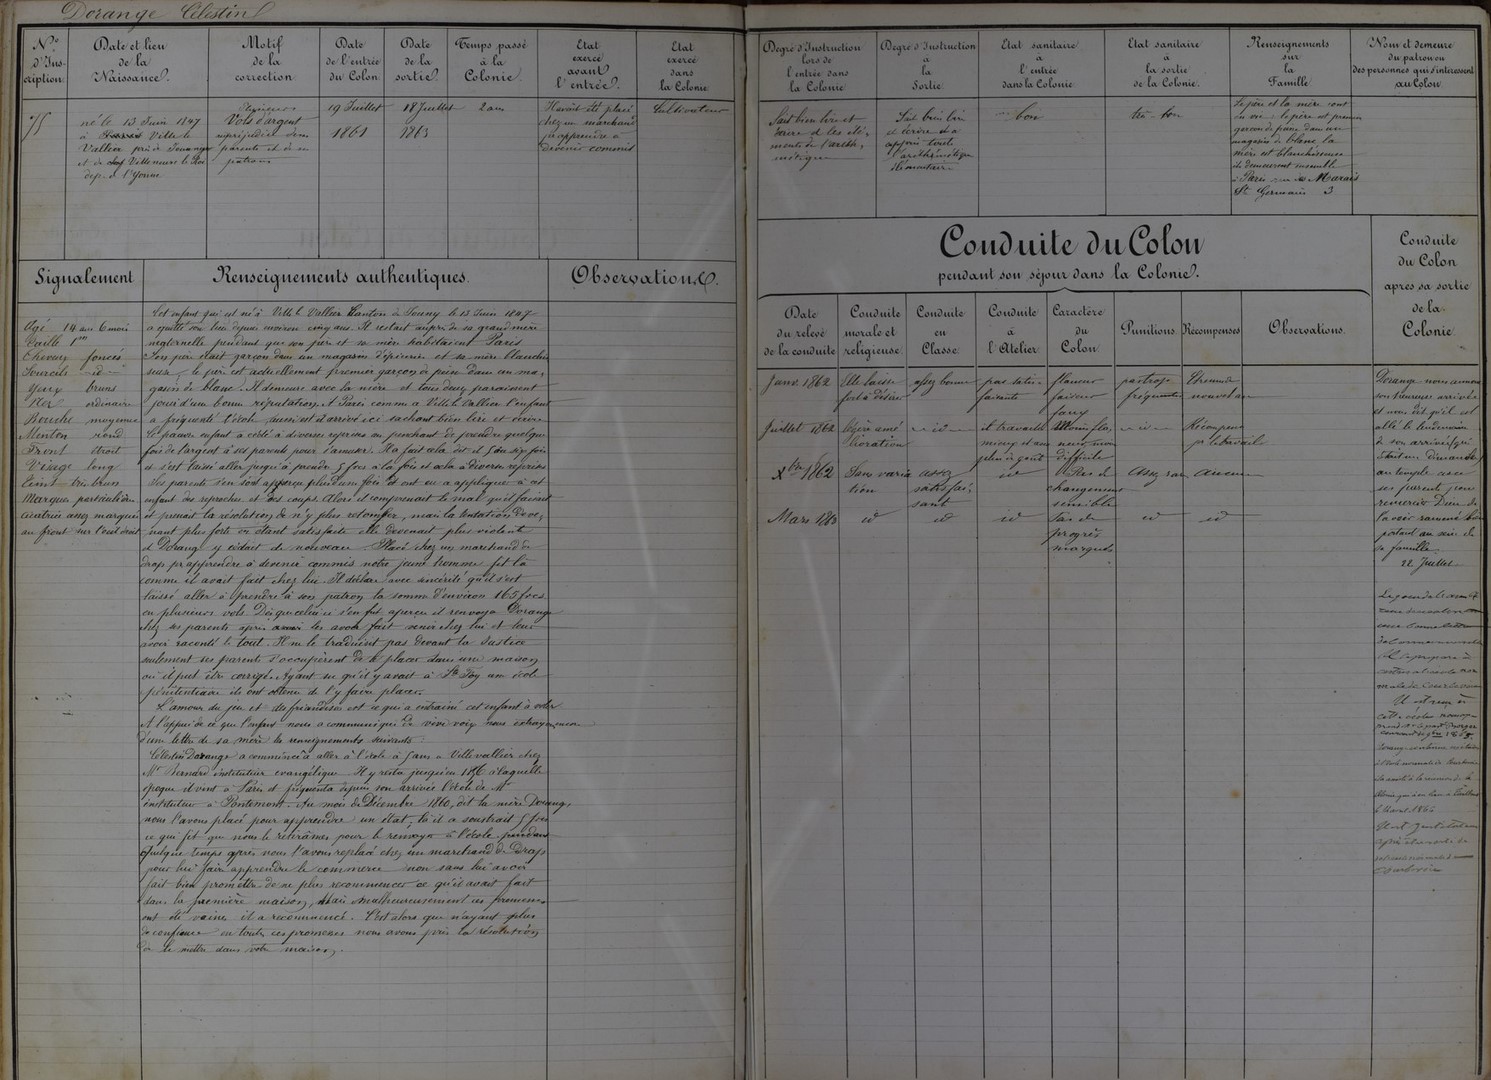 Dorange Célestin
N.o d'Inscription
Date et lieu de la Naissance.
Motif de la correction.
Date de l'entrée du Colon.
Date de la sortie.
Temps passé à la Colonie.
Etat exercé avant l'entrée.
Etat exercé dans la Colonie
Degré d'Instruction lors de l'entrée dans la Colonie
Degré d'Instruction à la Sortie.
Etat sanitaire à l'entrée dans la Colonie
Etat sanitaire à la sortie de la Colonie.
Renseignements sur la Famille
Nom et demeure du patron ou des personnes qui s'intéressent au Colon
75
né le 13 Juin 1847
à Ville le
Vallier près de
dep. de l'Yonne
Plusieurs
Vols d'argent
au préjudice de ses
parents et de son
patron
19 Juillet
1861
18 Juillet
1863
2 ans
Il avait été placé
chez un marchand
pr apprendre à
devenir commis
Cultivateur
Sait bien lire et
écrire et les élé-
ments de l'arith-
métique
Sait bien lire
et écrire et a
appris toute
l'arithmétique
élémentaire
bon
très-bon
Le père et la mère sont
en vie. le père est premier
garçon de peine dans un
magasin de blanc la
mère est blanchisseuse
ils demeurent ensemble
à Paris rue des Marais
St Germain 3
Signalement
Renseignements authentiques.
Observations.
Agé 14 ans 6 mois
Taille 1m
Cheveux foncés
Sourcils -id-
Yeux bruns
Nez ordinaire
Bouche moyenne
Menton rond
Front droit
Visage long
Teint très brun
Marques particulières
cicatrice assez marquée
au front sur l'oeil droit
Cet enfant qui est né à Ville Vallier Canton de Joigny le 13 Juin 1847
a quitté son lieu depuis environ cinq ans. Il restait auprès de sa grand'mère
maternelle pendant que son père et sa mère habitaient Paris
Son père était garçon dans un magasin d'épiceries et sa mère blanchis-
seuse, le père est actuellement premier garçon de peine dans un ma-
gasin de blanc. Il demeure avec la mère et tous deux paraissent
jouir d'une bonne réputation. A Paris comme à Ville Vallier l'enfant
a fréquenté l'école aussi est-il arrivé ici sachant bien lire et écrire
Le pauvre enfant a cédé à diverses reprises au penchant de prendre quelque-
fois de l'argent à ses parents pour s'amuser. Il a fait cela dit-il 5 ou six fois
et s'est laissé aller jusqu'à prendre 5 fcs à la fois et cela à diverses reprises
Ses parents s'en sont apperçu plusieurs fois et ont eu à appliquer à cet
enfant des reproches et des coups. Alors il comprenait le mal qu'il faisait
et prenait la résolution de n'y plus retomber, mais la tentation deve-
nant plus forte en étant satisfaite elle devenait plus violente
et Dorange y cédait de nouveau. Placé chez un marchand de
drap pr apprendre à devenir commis notre jeune homme fit là
comme il avait fait chez lui. Il déclare avec sincérité qu'il s'est
laissé aller à prendre à son patron la somme d'environ 165 fcs
en plusieurs vols. Dès que celui-ci s'en fut aperçu il renvoya Dorange
chez ses parents après avoir les avoir fait venir chez lui et leur
avoir raconté le tout. Il ne le traduisit pas devant la Justice
seulement ses parents s'occupèrent de le placer dans une maison
où il put être corrigé. Ayant su qu'il y avait à Ste Foy une école
pénitentiaire ils ont obtenu de l'y faire placer.
L'amour du jeu et des friandises est ce qui a entraîné cet enfant à voler
A l'appui de ce que l'enfant nous a communiqué de vive voix nous extrayons
d'une lettre de sa mère les renseignements suivants :
Célestin Dorange a commencé à aller à l'école à 5 ans à Villevallier chez
Mr Bernard instituteur évangélique. Il y resta jusqu'en 1856 à laquelle
époque il vint à Paris et fréquenta depuis son arrivée l'école de Mr
instituteur à Pentemont. Au mois de Décembre 1860, dit la mère Dorange,
nous l'avons placé pour apprendre un état, là il a soustrait 5 fcs
ce qui fit que nous le retirâmes pour le renvoyer à l'école pendant
quelque temps après nous l'avons replacé chez un marchand de Drap
pour lui faire apprendre le commerce non sans lui avoir
fait bien promettre de ne plus recommencer ce qu'il avait fait
dans la première maison, Mais malheureusement ces promesses
ont été vaines il a recommencé. C'est alors que n'ayant plus
de confiance en toutes ces promesses nous avons pris la résolution
de le mettre dans votre maison.
Conduite du Colon
pendant son séjour dans la Colonie.
Date du relevé de la conduite
Conduite morale et religieuse
Conduite en Classe.
Conduite à l'Atelier
Caractère du Colon
Punitions.
Récompenses
Observations.
Conduite du Colon après sa sortie de la Colonie
Janv. 1862
Elle laisse
fort à désirer
assez bonne
pas satis-
faisante
flaneur
faiseur
faux
pas trop
fréquentes
Juillet 1862
légère amé-
lioration
-id-
il travaille
mieux et avec
plus de goût
-id-
Récompense
pr le travail
Xbre 1862
Sans varia-
tion
assez
satisfai-
sant
id
Pas de
changement
sensible
Assez rare
Aucune
Mars 1863
id
id
id
Pas de
progrès
marqués
id
id
Dorange nous annonce
son heureuse arrivée
et nous dit qu'il est
allé le lendemain
de son arrivée (qui
était un dimanche)
au temple avec
ses parents pour
remercier Dieu de
l'avoir ramené bien
portant au sein de
sa famille.
22 Juillet